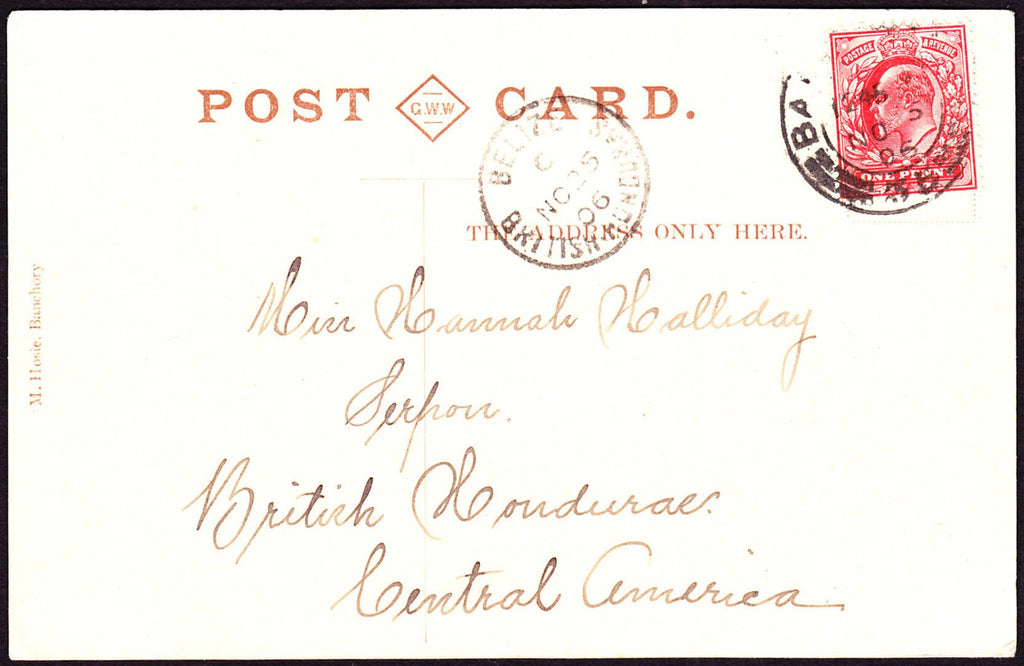 POST G.W.W CARD.
POSTAGE & REVENUE
ONE PENNY
BA
NO 5
06
BELIZE
C
NO 25
06
BRITISH HONDURAS
THE ADDRESS ONLY HERE.
M. Hosie, Banchory
Miss Hannah Halliday
Serpon.
British Honduras.
Central America